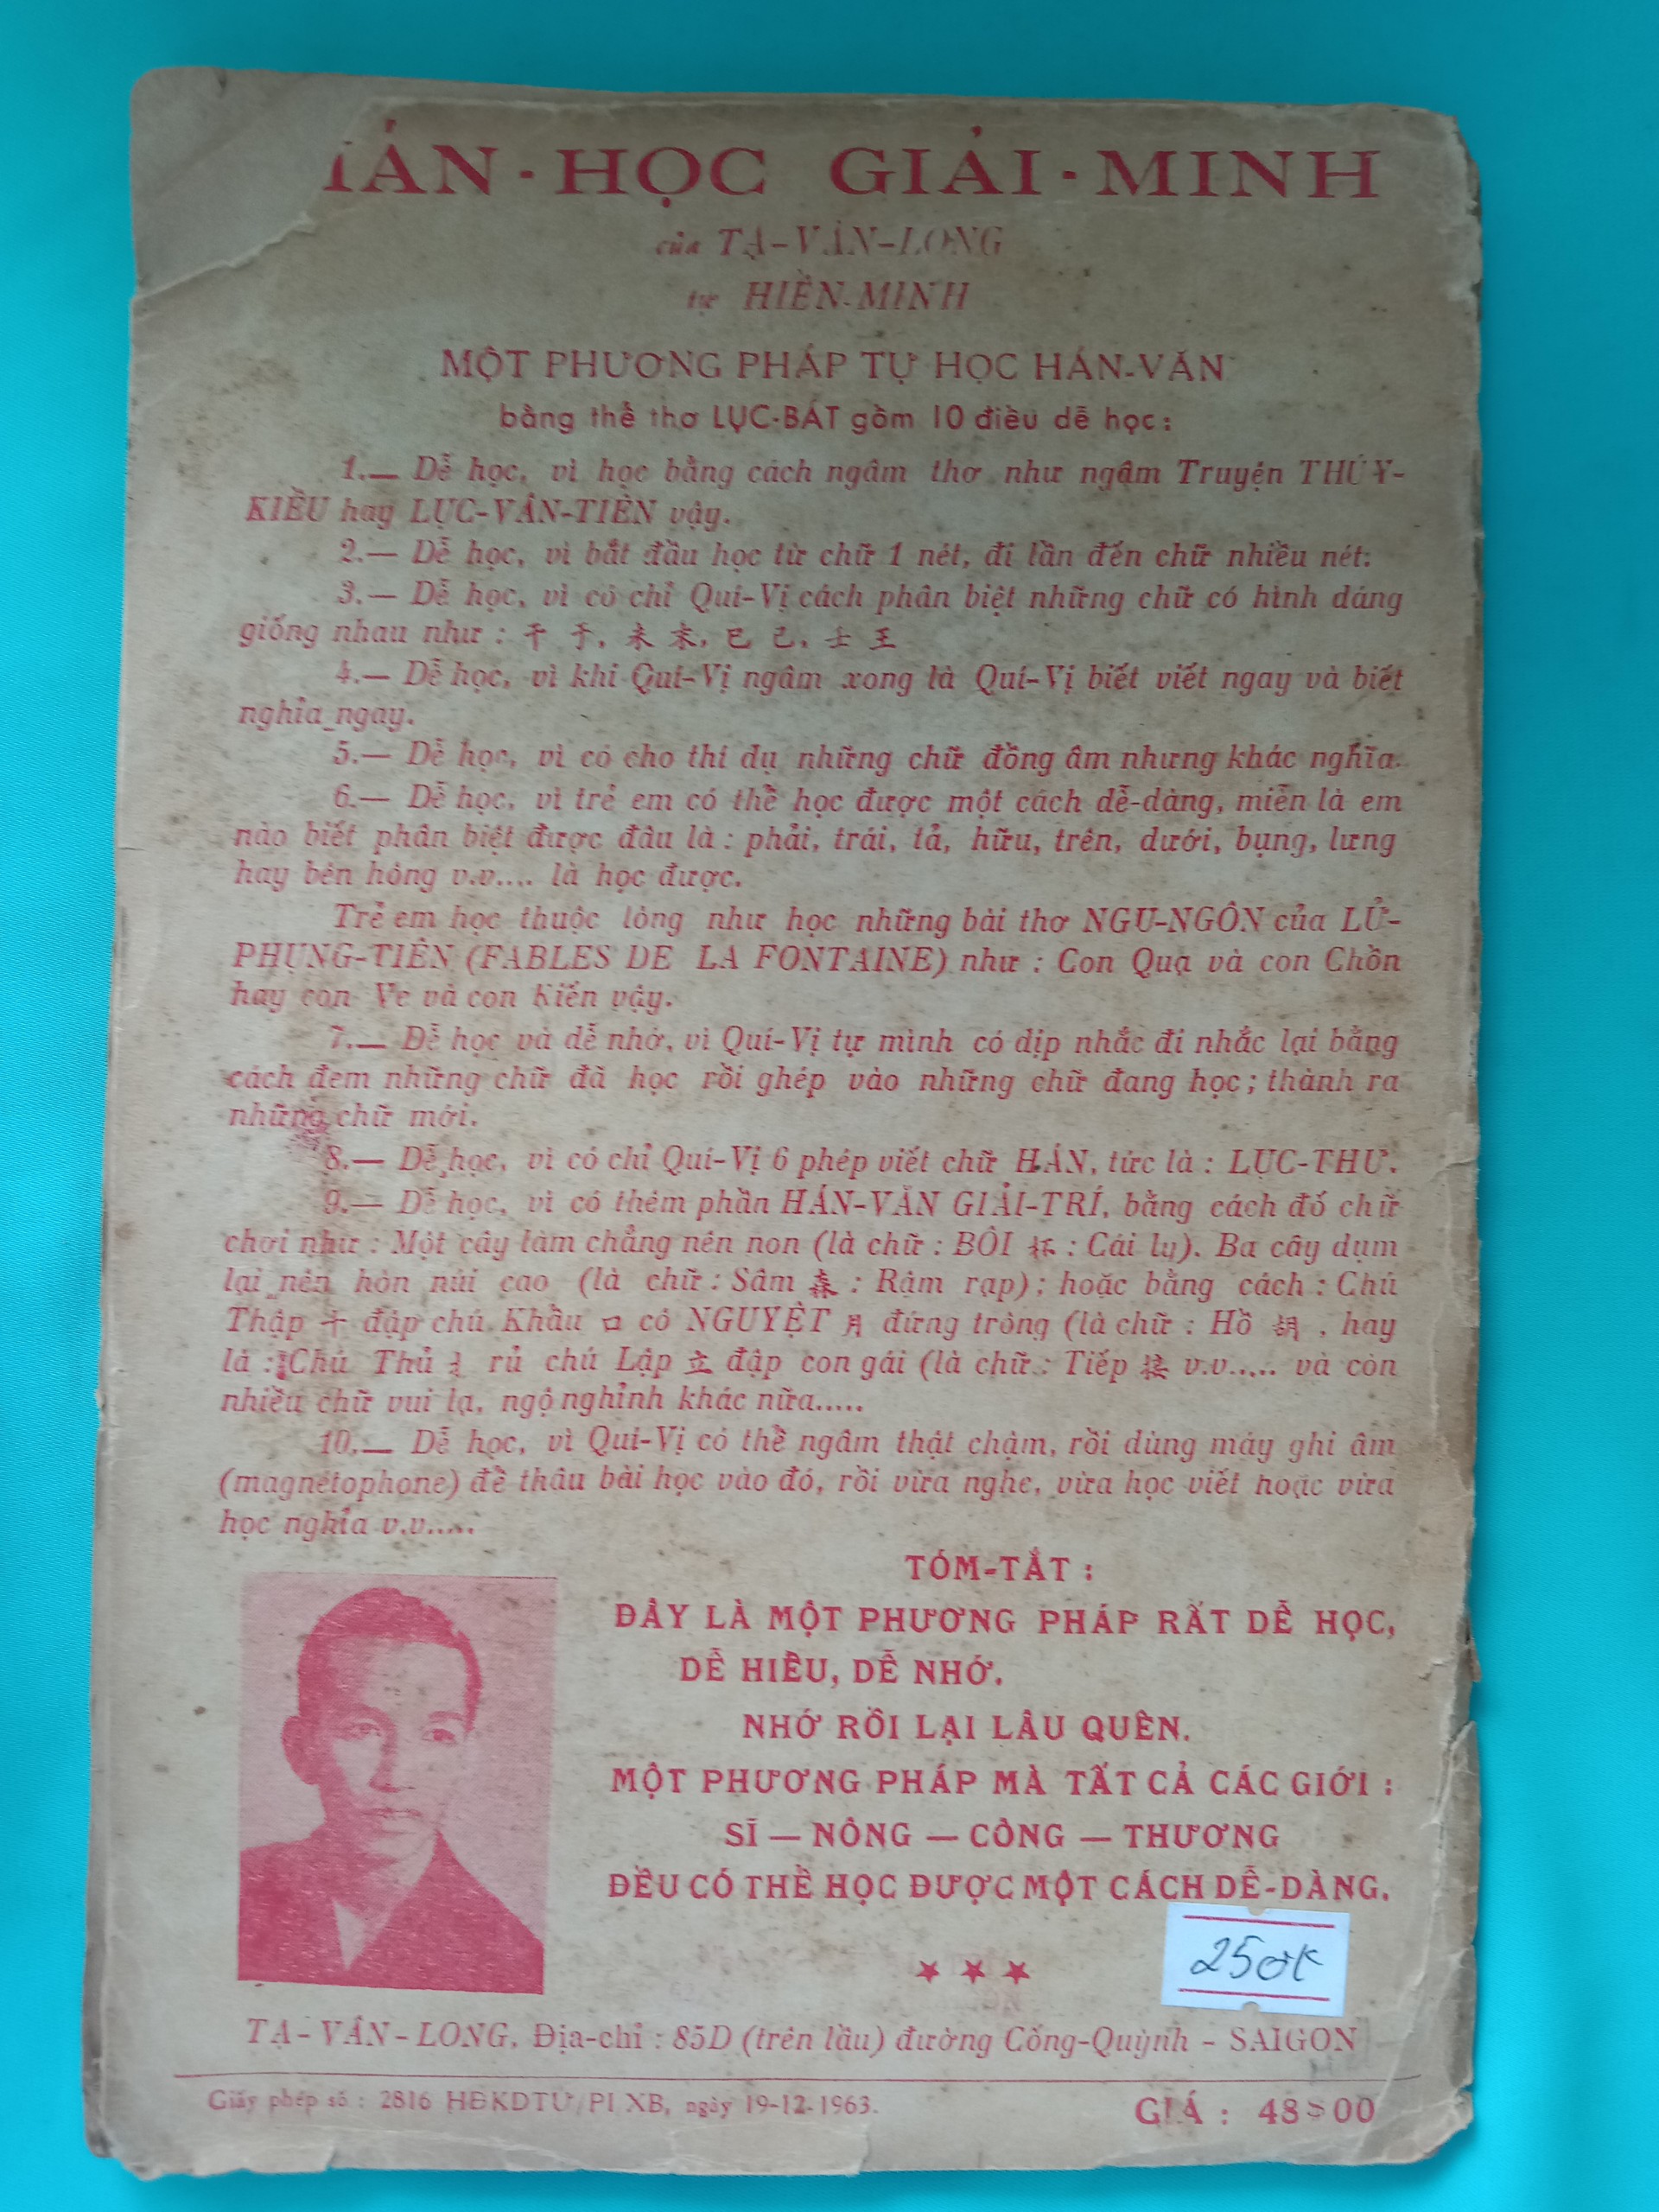 HÁN - HỌC GIẢI - MINH
của TẠ-VĂN-LONG
tự HIỀN-MINH
MỘT PHƯƠNG PHÁP TỰ HỌC HÁN-VĂN
bằng thể thơ LỤC-BÁT gồm 10 điều dễ học :
1.— Dễ học, vì học bằng cách ngâm thơ như ngâm Truyện THÚY-
KIỀU hay LỤC-VÂN-TIÊN vậy.
2.— Dễ học, vì bắt đầu học từ chữ 1 nét, đi lần đến chữ nhiều nét:
3.— Dễ học, vì có chỉ Quí-Vị cách phân biệt những chữ có hình dáng
giống nhau như : 干 于, 未 末, 巳 己, 士 王
4.— Dễ học, vì khi Quí-Vị ngâm xong là Quí-Vị biết viết ngay và biết
nghĩa ngay.
5.— Dễ học, vì có cho thí dụ những chữ đồng âm nhưng khác nghĩa.
6.— Dễ học, vì trẻ em có thể học được một cách dễ-dàng, miễn là em
nào biết phân biệt được đâu là : phải, trái, tả, hữu, trên, dưới, bụng, lưng
hay bên hông v.v.... là học được.
Trẻ em học thuộc lòng như học những bài thơ NGỤ-NGÔN của LỬ-
PHỤNG-TIÊN (FABLES DE LA FONTAINE) như : Con Quạ và con Chồn
hay con Ve và con Kiến vậy.
7.— Dễ học và dễ nhớ, vì Quí-Vị tự mình có dịp nhắc đi nhắc lại bằng
cách đem những chữ đã học rồi ghép vào những chữ đang học ; thành ra
những chữ mới.
8.— Dễ học, vì có chỉ Quí-Vị 6 phép viết chữ HÁN, tức là : LỤC-THƯ.
9.— Dễ học, vì có thêm phần HÁN-VĂN GIẢI-TRÍ, bằng cách đố chữ
chơi như : Một cây làm chẳng nên non (là chữ : BÔI 杯 : Cái ly). Ba cây dụm
lại nên hòn núi cao (là chữ : Sâm 森 : Rậm rạp) ; hoặc bằng cách : Chú
Thập 十 đập chú Khẩu 口 có NGUYỆT 月 đứng tròng (là chữ : Hồ 胡 , hay
là : Chú Thủ 扌 rủ chú Lập 立 đập con gái (là chữ : Tiếp 接 v.v..... và còn
nhiều chữ vui lạ, ngộ nghĩnh khác nữa.....
10.— Dễ học, vì Quí-Vị có thể ngâm thật chậm, rồi dùng máy ghi âm
(magnétophone) để thâu bài học vào đó, rồi vừa nghe, vừa học viết hoặc vừa
học nghĩa v.v.....
TÓM-TẮT :
ĐÂY LÀ MỘT PHƯƠNG PHÁP RẤT DỄ HỌC,
DỄ HIỂU, DỄ NHỚ.
NHỚ RỒI LẠI LÂU QUÊN.
MỘT PHƯƠNG PHÁP MÀ TẤT CẢ CÁC GIỚI :
SĨ — NÔNG — CÔNG — THƯƠNG
ĐỀU CÓ THỂ HỌC ĐƯỢC MỘT CÁCH DỄ-DÀNG.
250K
TẠ-VĂN-LONG, Địa-chỉ : 85D (trên lầu) đường Cống-Quỳnh - SAIGON
Giấy phép số : 2816 HĐKDTƯ/PI XB, ngày 19-12-1963.
GIÁ : 48$00